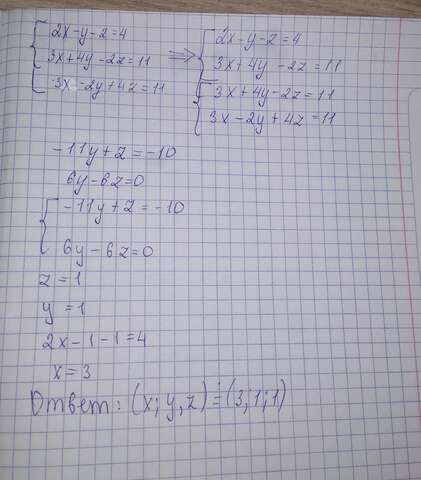 2x-y-z=4
3x+4y-2z=11
3x-2y+4z=11
=>
2x-y-z=4
3x+4y-2z=11
3x+4y-2z=11
3x-2y+4z=11
-11y+z=-10
6y-6z=0
-11y+z=-10
6y-6z=0
z=1
y=1
2x-1-1=4
x=3
Ответ: (x; y, z) = (3; 1; 1)